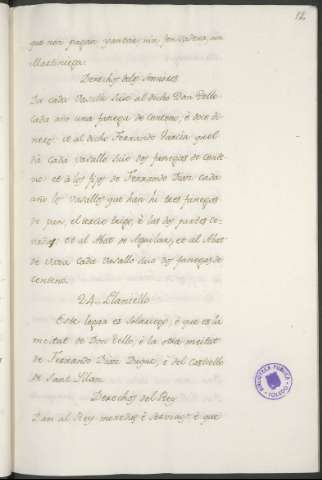 12
que non pagan yantar, nin fonsadera, nin
Martiniega.
Derechos delos Sennores
Da cada Vasallo suio al dicho Don Tello
cada año una fanega de Centeno, é doce di-
neros et al dicho Ferrando Garcia quel
dá cada Vasallo suio dos fanegas de cente-
no et á los fijos de Ferrando Diaz cada
año los Vasallos que han hi tres fanegas
de pan, el tercio trigo, é las dos partes ce-
vada, et al Abat de Aguilar, et al Abat
de cada Vasallo suio dos fanegas de
centeno.
24 Llaniello
Este logar es Solariego, é que es la
meitat de Don Tello, é la otra meitat
de Ferrando Diaz Duque, é del Castiello
de Sant Illan.
Derechos del Rey
Dan al Rey monedas é servicios, é que
BIBLIOTECA PUBLICA
TOLEDO